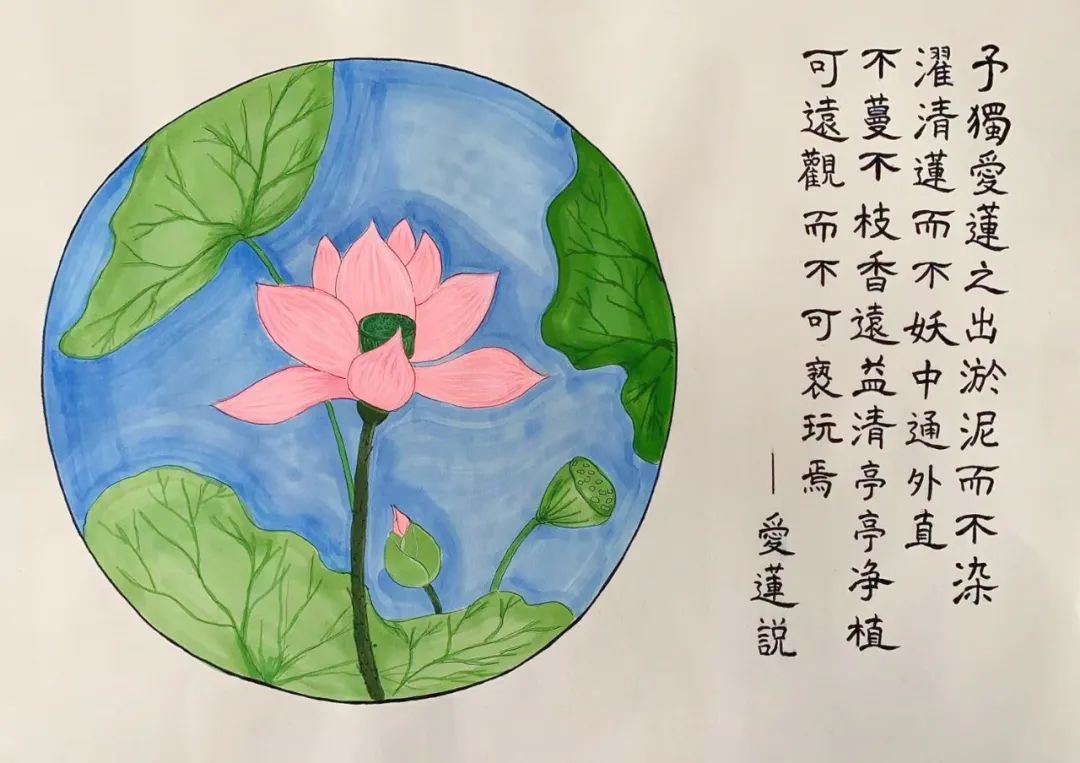 予獨愛蓮之出淤泥而不染
濯清蓮而不妖中通外直
不蔓不枝香遠益清亭亭净植
可遠觀而不可褻玩焉
——愛蓮説